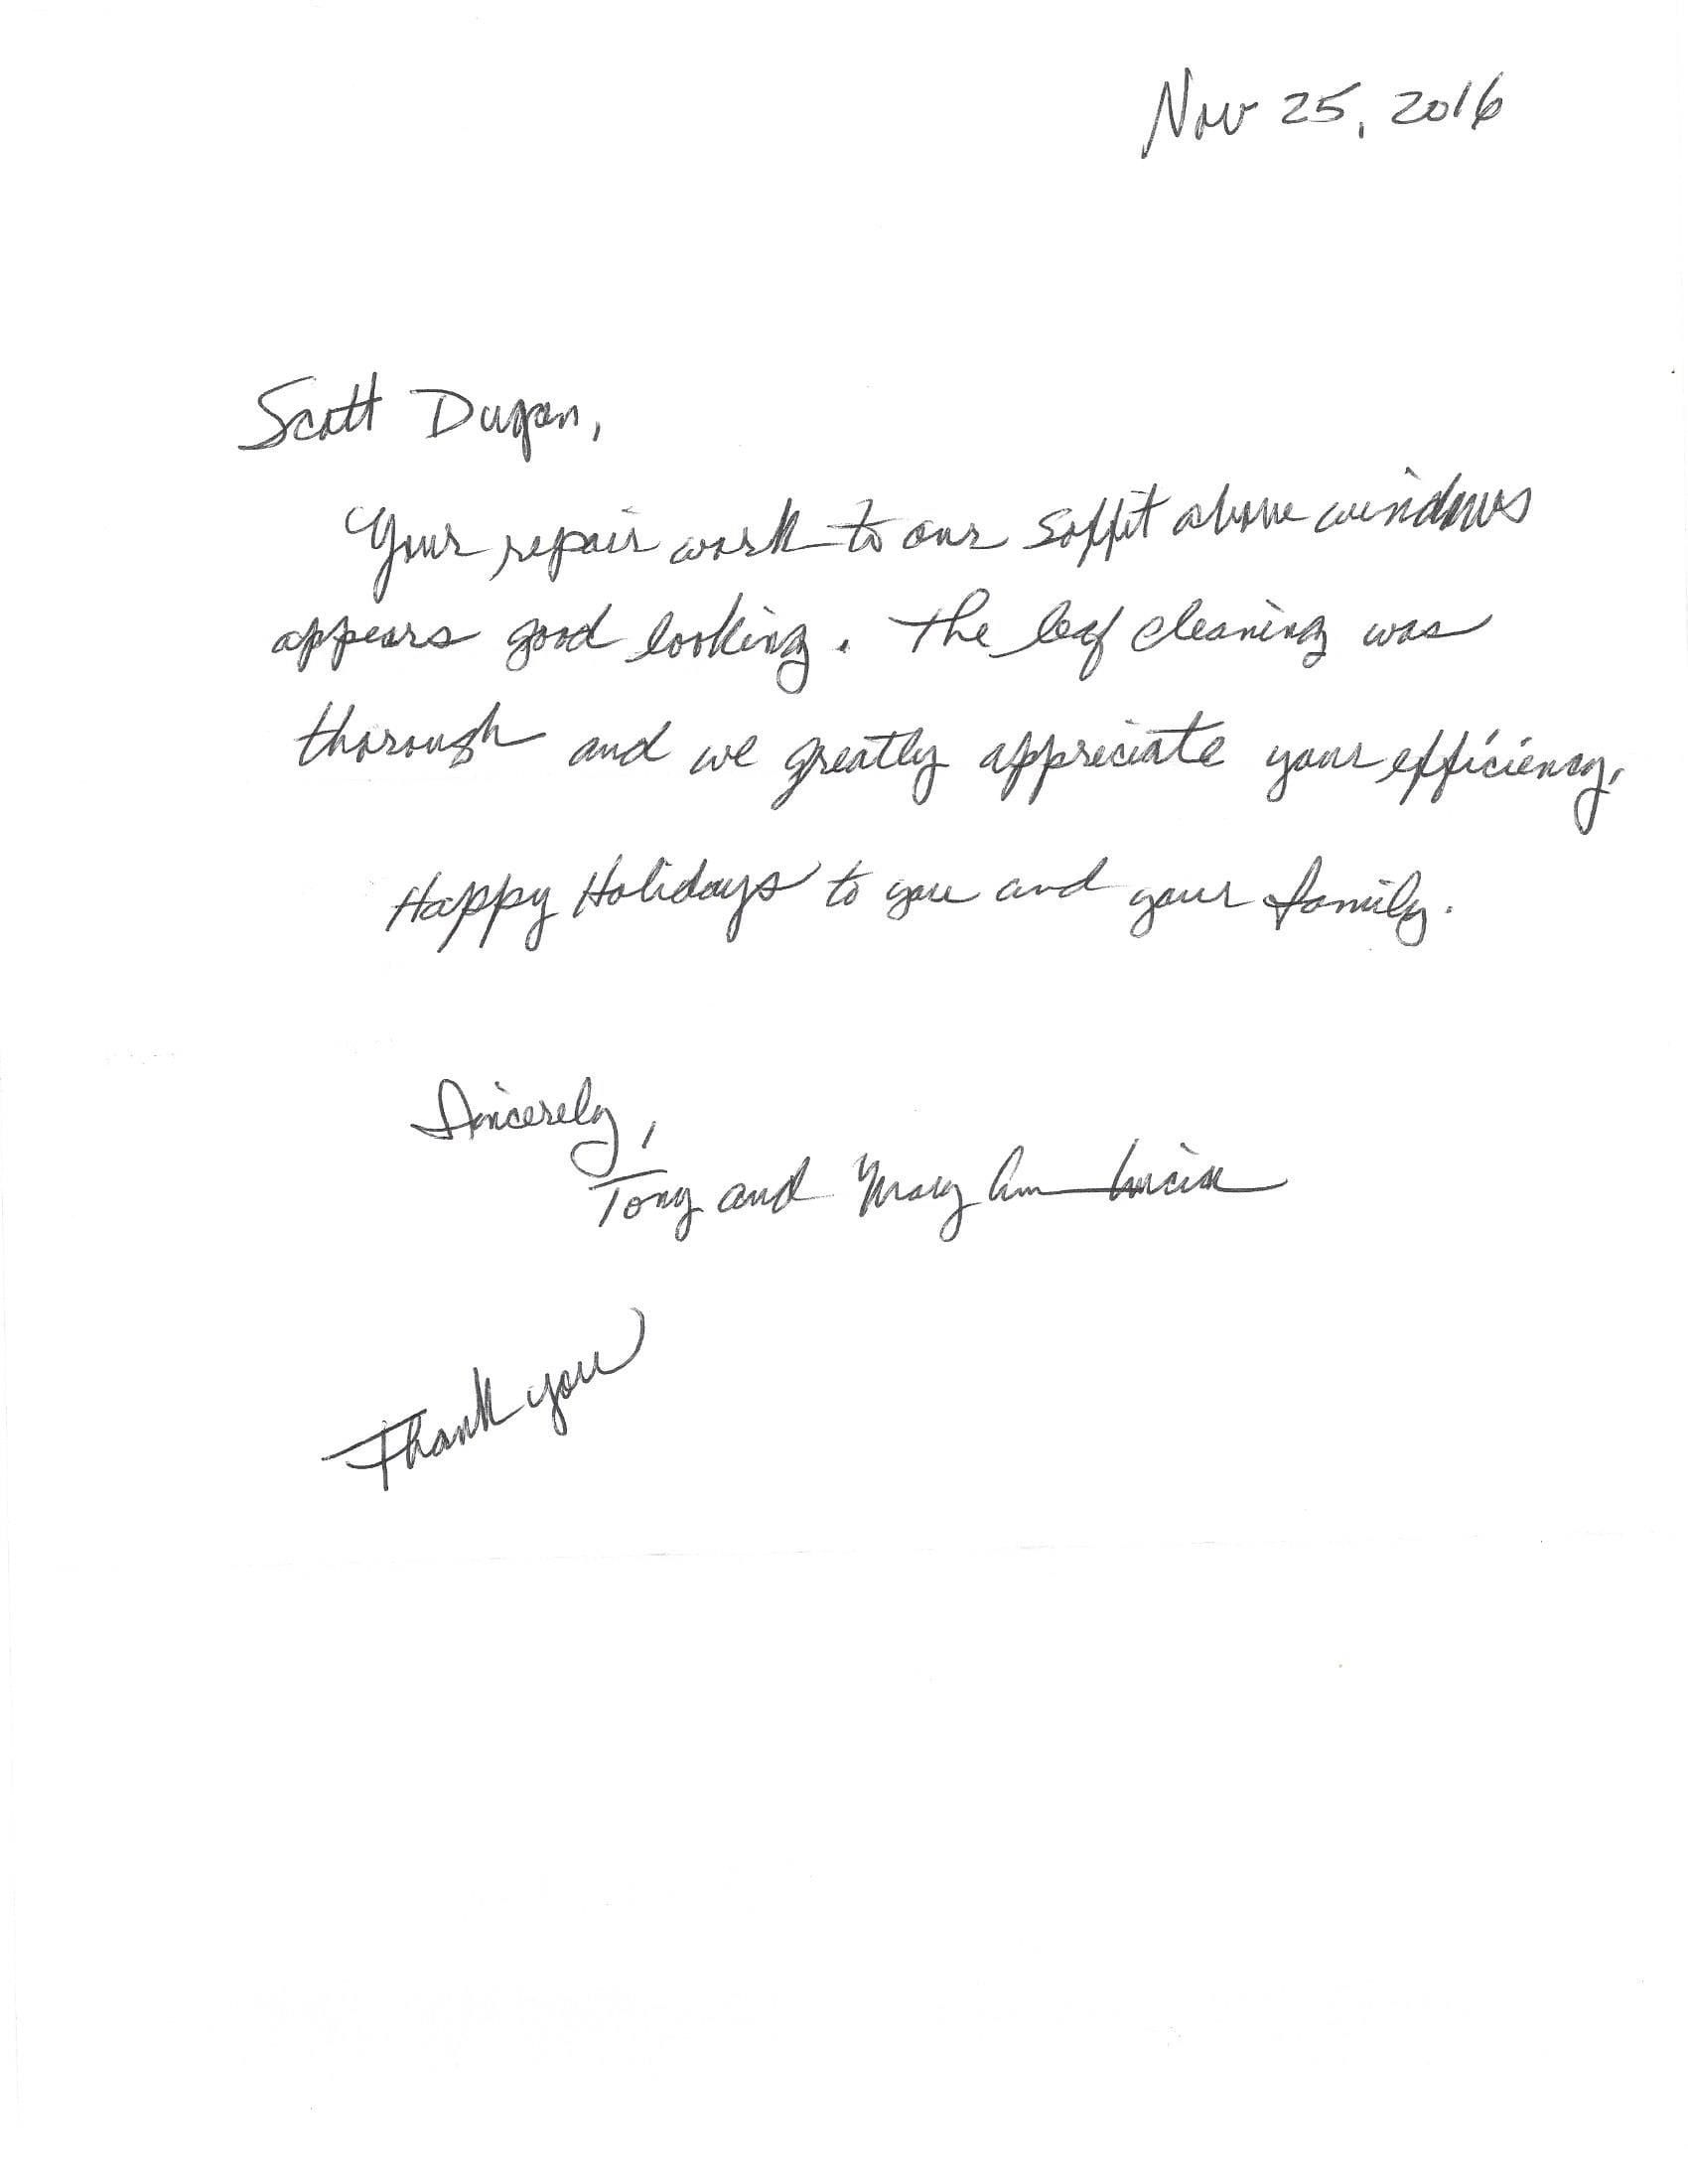 Nov 25, 2016
Scott Dugan,
Your repair work to our soffit above windows
appears good looking. The leaf cleaning was
thorough and we greatly appreciate your efficiency.
Happy Holidays to you and your family.
Sincerely,
Tony and Mary Ann
Thank you